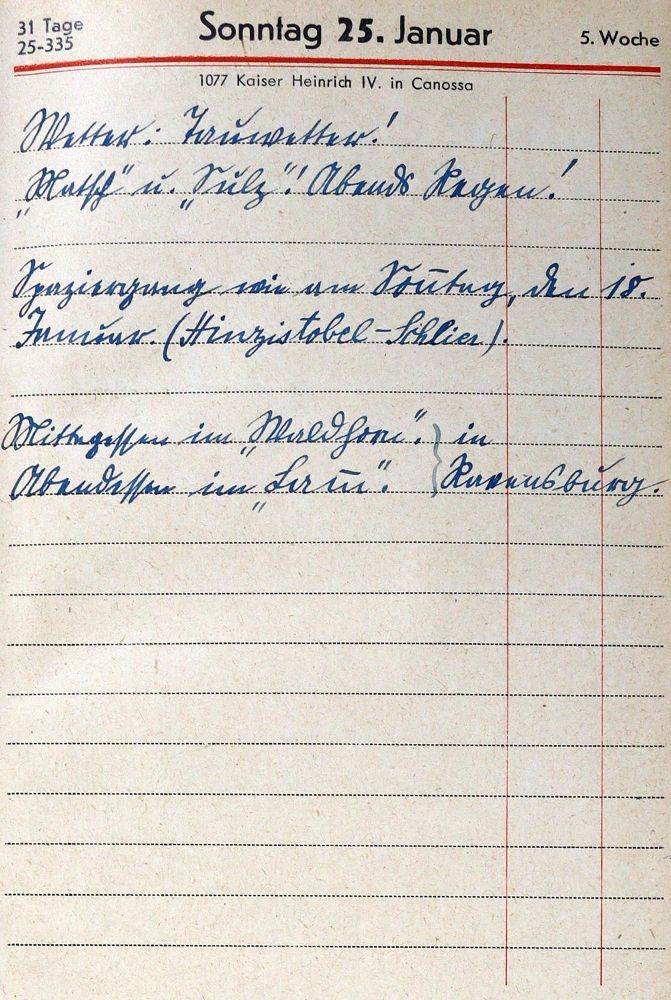 31 Tage
25-335
Sonntag 25. Januar
5. Woche
1077 Kaiser Heinrich IV. in Canossa
Wetter: Tauwetter!
„Matsch" u. „Sulz"! Abends Regen!
Spaziergang wie am Sonntag, den 18.
Januar. (Hinzistobel-Schlier).
Mittagessen im „Waldhorn". } in
Abendessen im „Lamm". } Ravensburg.